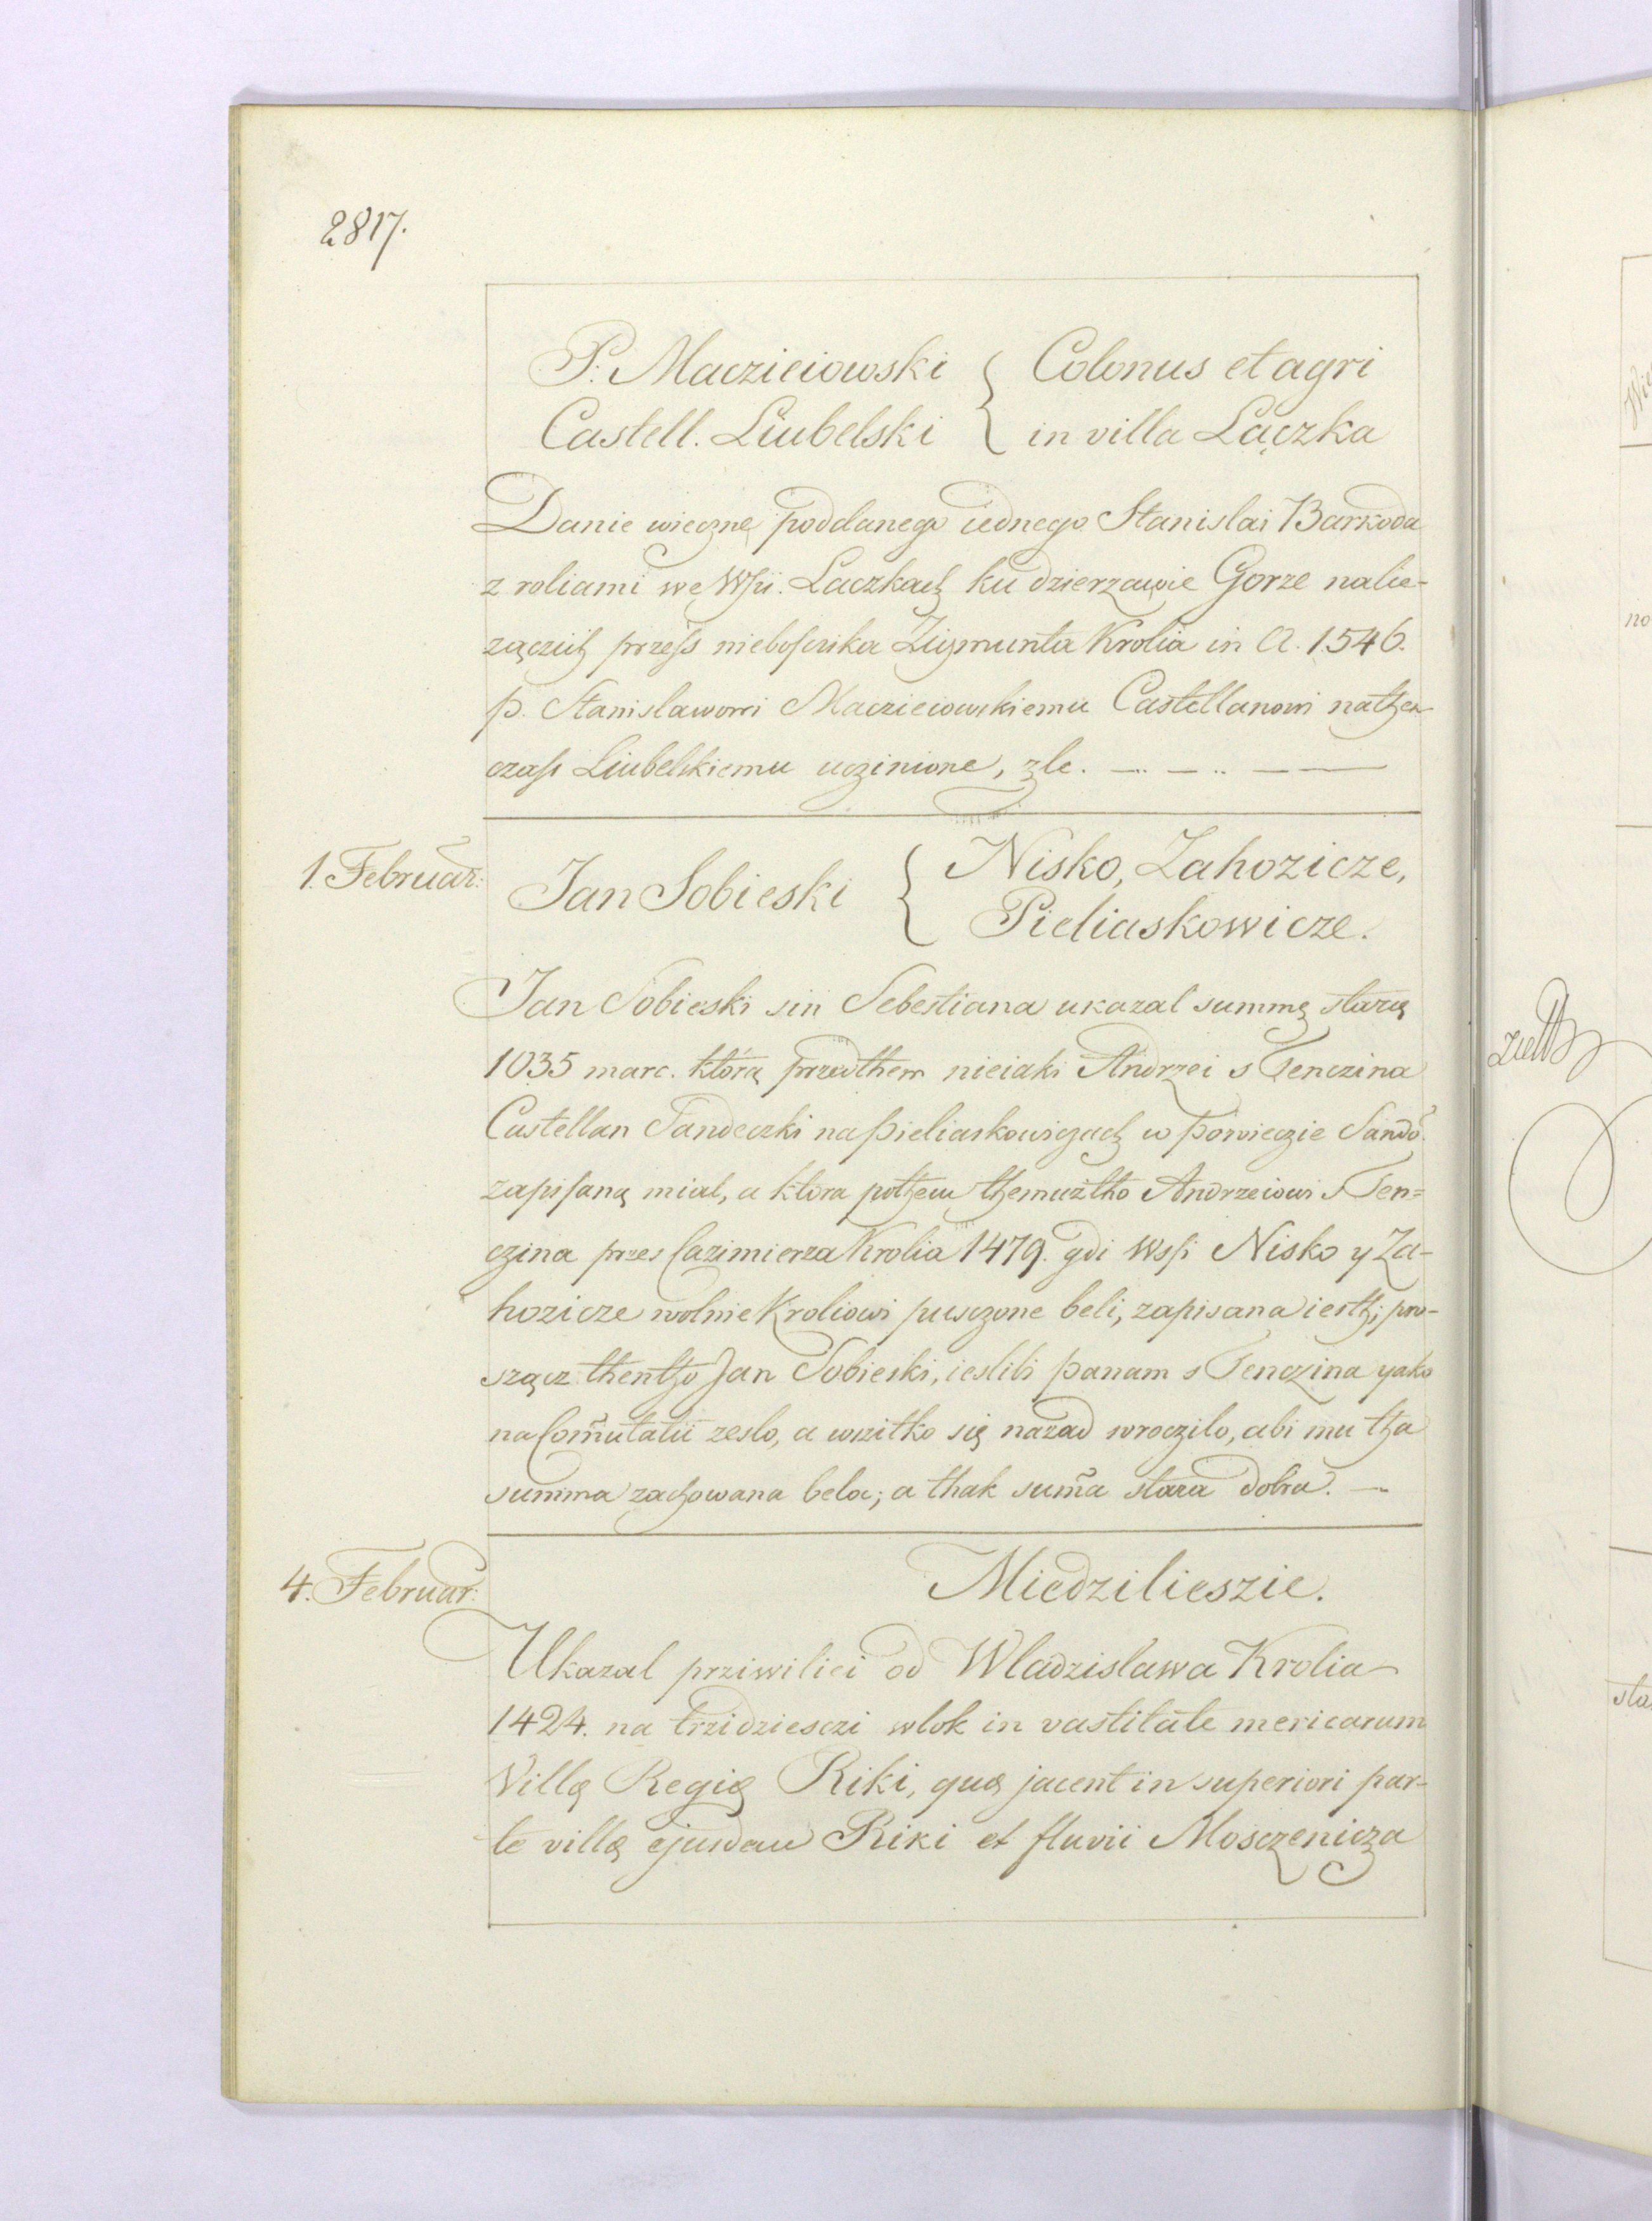 2817.
P. Macziciowski { Colonus et agri
Castell. Liubelski { in villa Lączka
Danie wieczne poddanego iednego Stanislai Barkoda
z roliami we Wsii. Laczkach ku dzierzawie Gorze nalie-
zączich przess niebosczika Zigmunta Krolia in A. 1546.
p. Stanislawowi Macziciowskiemu Castellanowi nathen
czass Liubelskiemu uczinione, zle.
1. Februar: Jan Sobieski { Nisko, Zahozicze,
Pieliaskowicze.
Jan Sobieski sin Sebestiana ukazal summę starą
1035 marc. którą przedthem nieiaki Andrzei s Tenczina
Castellan Sandeczki na Pieliaskowiczach w Powieczie Sando.
zapisaną mial, a ktora pothem themuztho Andrzeiowi s Ten=
czina przes Cazimierza Krolia 1479. gdi Wsi Nisko y Za-
hozicze wolnie Kroliowi pusczone beli, zapisana iesth; pro-
szącz thentho Jan Sobieski, iesliby Panam s Tenczina yako
na Com̃utatii zeslo, a wszitko się nazad wroczilo, abi mu tha
summa zachowana bela; a thak sum̃a stara dobra.
4. Februar: Miedzilieszie.
Ukazal prziwiliei od Wladzislawa Krolia
1424. na trzidziesczi wlok in vastitate mericarum
Villę Regię Riki, quę jacent in superiori par-
te villę ejusdem Riki et fluvii Mosczenicza